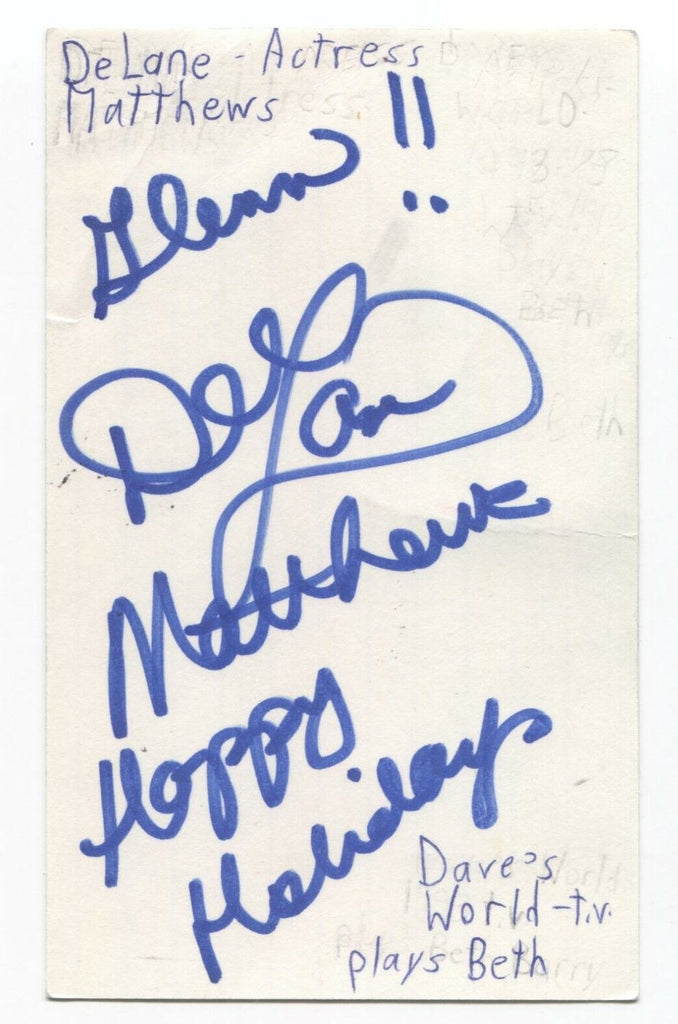 DeLane - Actress
Matthews
Glenn!!
DeLane
Matthews
Happy
Holidays
Dave's
World - t.v.
plays Beth